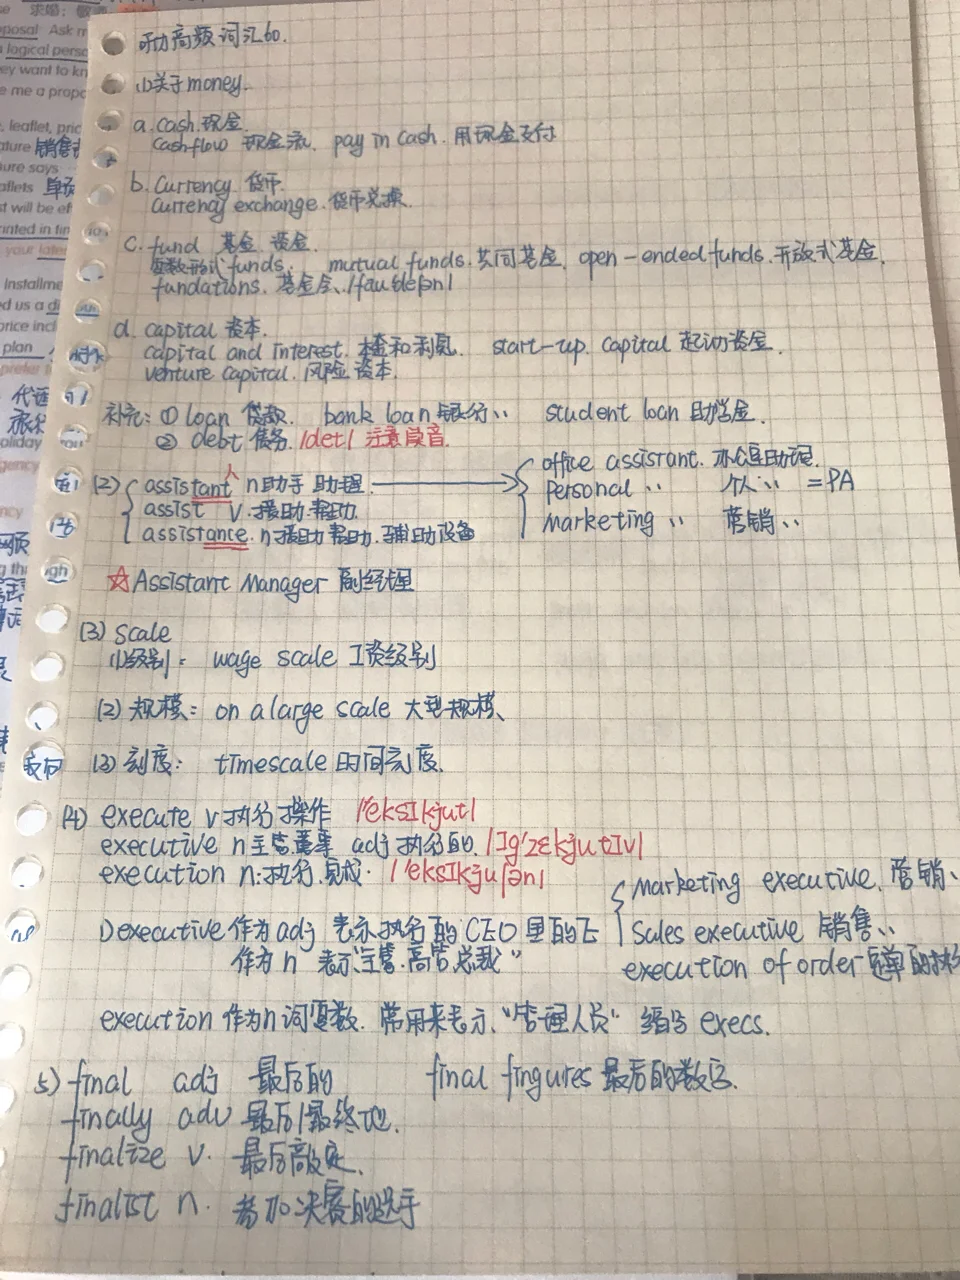 求婚；敬
posal Ask m
logical perso
ey want to kn
e me a propo
leaflet, pric
ature 销售
ure says
aflets 单页
t will be ef
inted in tim
your later
Installme
ed us a di
price incl
plan
prefer
代理
旅行
oliday
gency
ncy
高频词汇60.
(1)关于money.
a. cash. 现金.
cashflow 现金流. pay in cash. 用现金支付
b. Currency 货币.
Currency exchange. 货币兑换.
C. fund 基金. 资金.
复数形式funds. mutual funds. 共同基金. open-ended funds. 开放式基金.
fundations. 基金会. /faʊˈdeʃən/
d. capital 资本.
capital and interest. 本金和利息. start-up. capital 起动资金.
venture capital. 风险资本.
补充: ① loan 贷款. bank loan 银行〃 student loan 助学金.
② debt 债务. /det/ 注意读音.
人
(2) assistant n助手 助理 → office assistant. 办公室助理.
assist v. 援助. 帮助 Personal 〃 个人〃 =PA
assistance. n.援助 帮助. 辅助设备 Marketing 〃 营销〃
☆Assistant Manager 副经理
(3) scale
(1)级别: wage scale 工资级别
(2) 规模: on a large scale 大型规模、
(3) 刻度: timescale 时间刻度.
(4) execute v执行 操作 /'eksɪkjut/
executive n主管董事 adj 执行的. /ɪg'zekjutɪv/
execution n:执行. 完成. /'eksɪkjuʃən/
Marketing executive. 营销、
1) executive 作为adj 表示执行的 CEO里的E Sales executive 销售〃
作为n 表示"主管.高管 总裁" execution of order
execution 作为n词复数. 常用来表示."管理人员" 缩写 execs.
5) final adj 最后的 final fingures 最后的数字.
finally adv 最后/最终地.
finalize v. 最后敲定.
finalist n. 参加决赛的选手